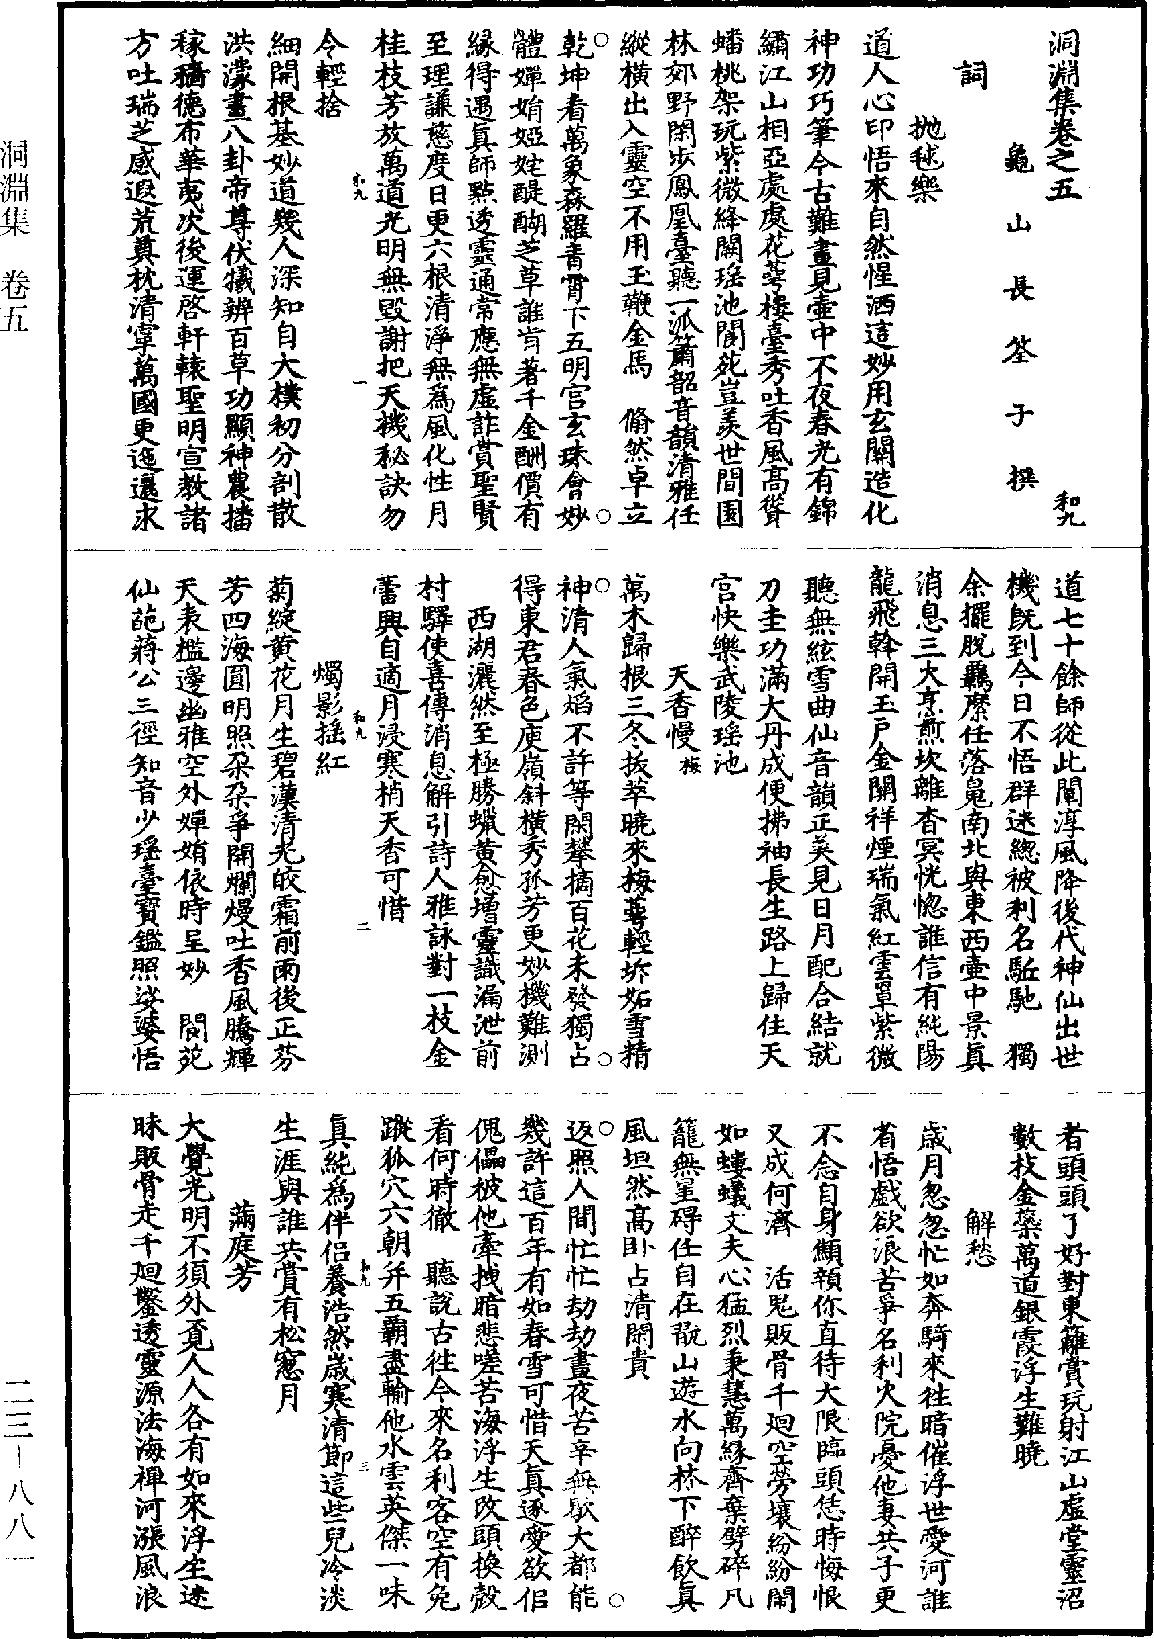 洞淵集卷之五
和九
龜山長筌子撰
詞
拋毬樂
道人心印悟來自然惺洒這妙用玄關造化
神功巧筆今古難畫見壺中不夜春光有錦
繡江山相亞處處花萼樓臺秀吐香風高聳
蟠桃架玩紫微絳闕瑶池閬苑豈羨世間園
林郊野閑步鳳凰臺聽一派簫韶音韻清雅任
縱橫出入靈空不用玉鞭金馬　翛然卓立
乾坤看萬象森羅青霄下五明宮玄珠會妙
體嬋娟婭姹醍醐芝草誰肯著千金酬價有
緣得遇真師點透靈通常應無虛詐賞聖賢
至理謙慈度日更六根清淨無為風化性月
桂枝芳放萬道光明無毀謝把天機秘訣勿
令輕捨
細開根基妙道幾人深知自大樸初分剖散
洪濛畫八卦帝尊伏犧辨百草功顯神農播
稼穡德布華夷次後運啓軒轅聖明宣教諸
方吐瑞芝感遐荒奠枕清寧萬國更迤邐求
道七十餘師從此闡淳風降後代神仙出世
機既到今日不悟群迷總被利名駈馳　獨
余擺脫羈縻任落魄南北與東西壺中景真
消息三大烹煎坎離杳冥恍惚誰信有純陽
龍飛斡開玉戶金關祥煙瑞氣紅雲罩紫微
聽無絃雪曲仙音韻正英見日月配合結就
刀圭功滿大丹成便拂袖長生路上歸住天
宮快樂武陵瑶池
天香慢梅
萬木歸根三冬拔萃曉來梅萼輕坼妬雪精
神清人氣焰不許等閑攀摘百花未發獨占
得東君春色庾嶺斜橫秀孤芳更妙機難測
西湖灑然至極勝蠟黃愈增靈識漏泄前
村驛使喜傳消息解引詩人雅詠對一枝金
蕾興自適月浸寒梢天香可惜
燭影搖紅
菊綻黃花月生碧漢清光皎霜前雨後正芬
芳四海圓明照朶朶爭開爛熳吐香風騰輝
天表檻邊幽雅空外嬋娟依時呈妙　閬苑
仙葩蔣公三徑知音少瑶臺寶鑑照娑婆悟
者頭頭了好對東籬賞玩射江山虛堂靈沼
數枝金蘂萬道銀霞浮生難曉
解愁
歲月忽忽忙如奔騎來往暗催浮世愛河誰
省悟戲欲浪苦爭名利火院憂他妻共子更
不念自身顦顇你直待大限臨頭恁時悔恨
又成何濟　活鬼販骨千廻空勞壤紛紛鬧
如螻蟻丈夫心猛烈秉慧萬緣齊棄劈碎凡
籠無罣碍任自在翫山遊水向林下醉飲真
風坦然高卧占清閑貴
返照人間忙忙劫劫晝夜苦辛無歇大都能
幾許這百年有如春雪可惜天真逐愛欲佀
傀儡被他牽拽暗悲嗟苦海浮生改頭換殼
看何時徹　聽說古往今來名利客空有兔
蹤狐穴六朝并五霸盡輸他水雲英傑一味
真純為伴侶養浩然歲寒清節這些兒冷淡
生涯與誰共賞有松窻月
滿庭芳
大覺光明不須外覓人人各有如來浮生迷
昧販骨走千廻鑿透靈源法海禪河漲風浪
洞淵集　卷五
二三—八八一